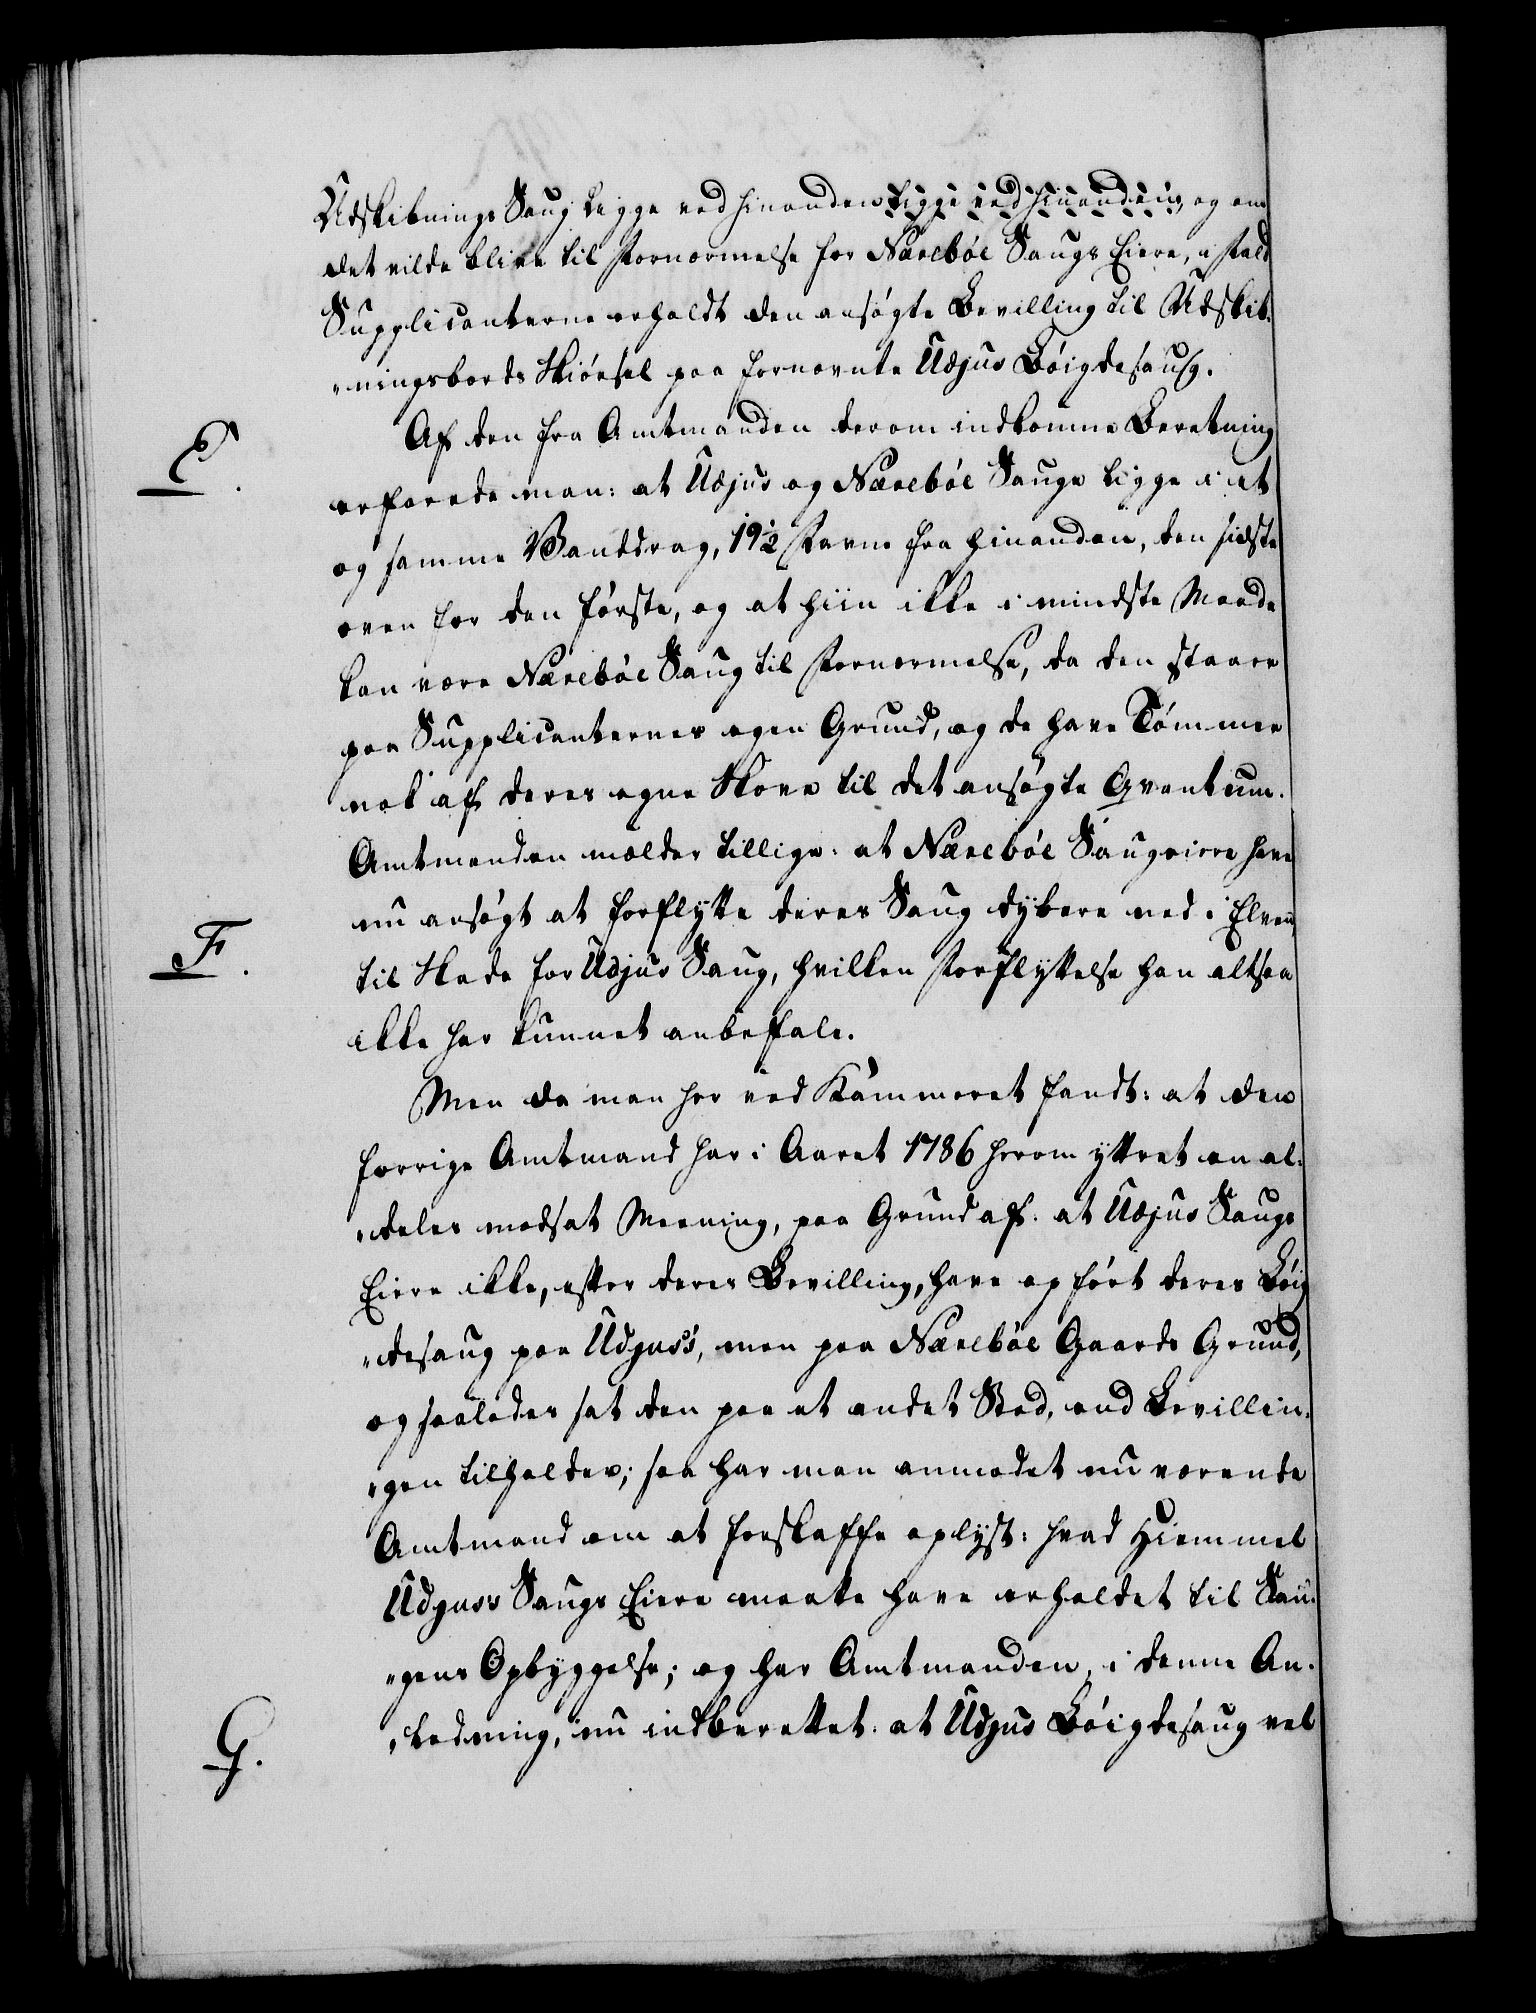 Udskibnings Saug ligge ved hinanden ligge ved hinanden, og om
det vilde blive til Fornærmelse for Næsebøe Saugs Eiere, i fald
Supplicanterne erholdt den ansøgte Bevilling til Udskib-
"ningsbords Skiørsel paa fornævnte Udjus Bøigdesaug.
E. Af den fra Amtmanden derom indkomne Beretning
erfarede man: at Udjus og Næsebøe Sauge ligge i et
og samme Vanddrag, 19½ Favne fra hinanden, den sidste
oven for den første, og at hiin ikke i mindste Maade
kan være Næsebøe Saug til Fornærmelse, da den staaer
paa Supplicanternes egen Grund, og de have Tømmer
nok af deres egne Skove til det ansøgte Qvantum.
Amtmanden melder tillige: at Næsebøe Saugeiere have
F. nu ansøgt at forflytte deres Saug dybere ned i Elven
til Skade for Udjus Saug, hvilken Forflyttelse han altsaa
ikke har kunnet anbefale.
Men da man her ved Kammeret fandt: at den
forrige Amtmand har i Aaret 1786 herom yttret en al-
"deles modsat Meening, paa Grund af: at Udjus Saugs
Eiere ikke, efter deres Bevilling, have opført deres Bøig
"desaug paa Udjus's, men paa Næsebøe Gaards Grund,
og saaledes sat den paa et andet Sted, end Bevillin-
"gen tilholder; saa har man anmodet nu værende
Amtmand om at forskaffe oplyst: hvad Hiemmel
Udjuss Saugs Eiere maatte have erholdet til Sau-
"gens Opbyggelse; og har Amtmanden, i denne An-
G. "ledning, nu indberettet: at Udjus Bøigdesaug vel